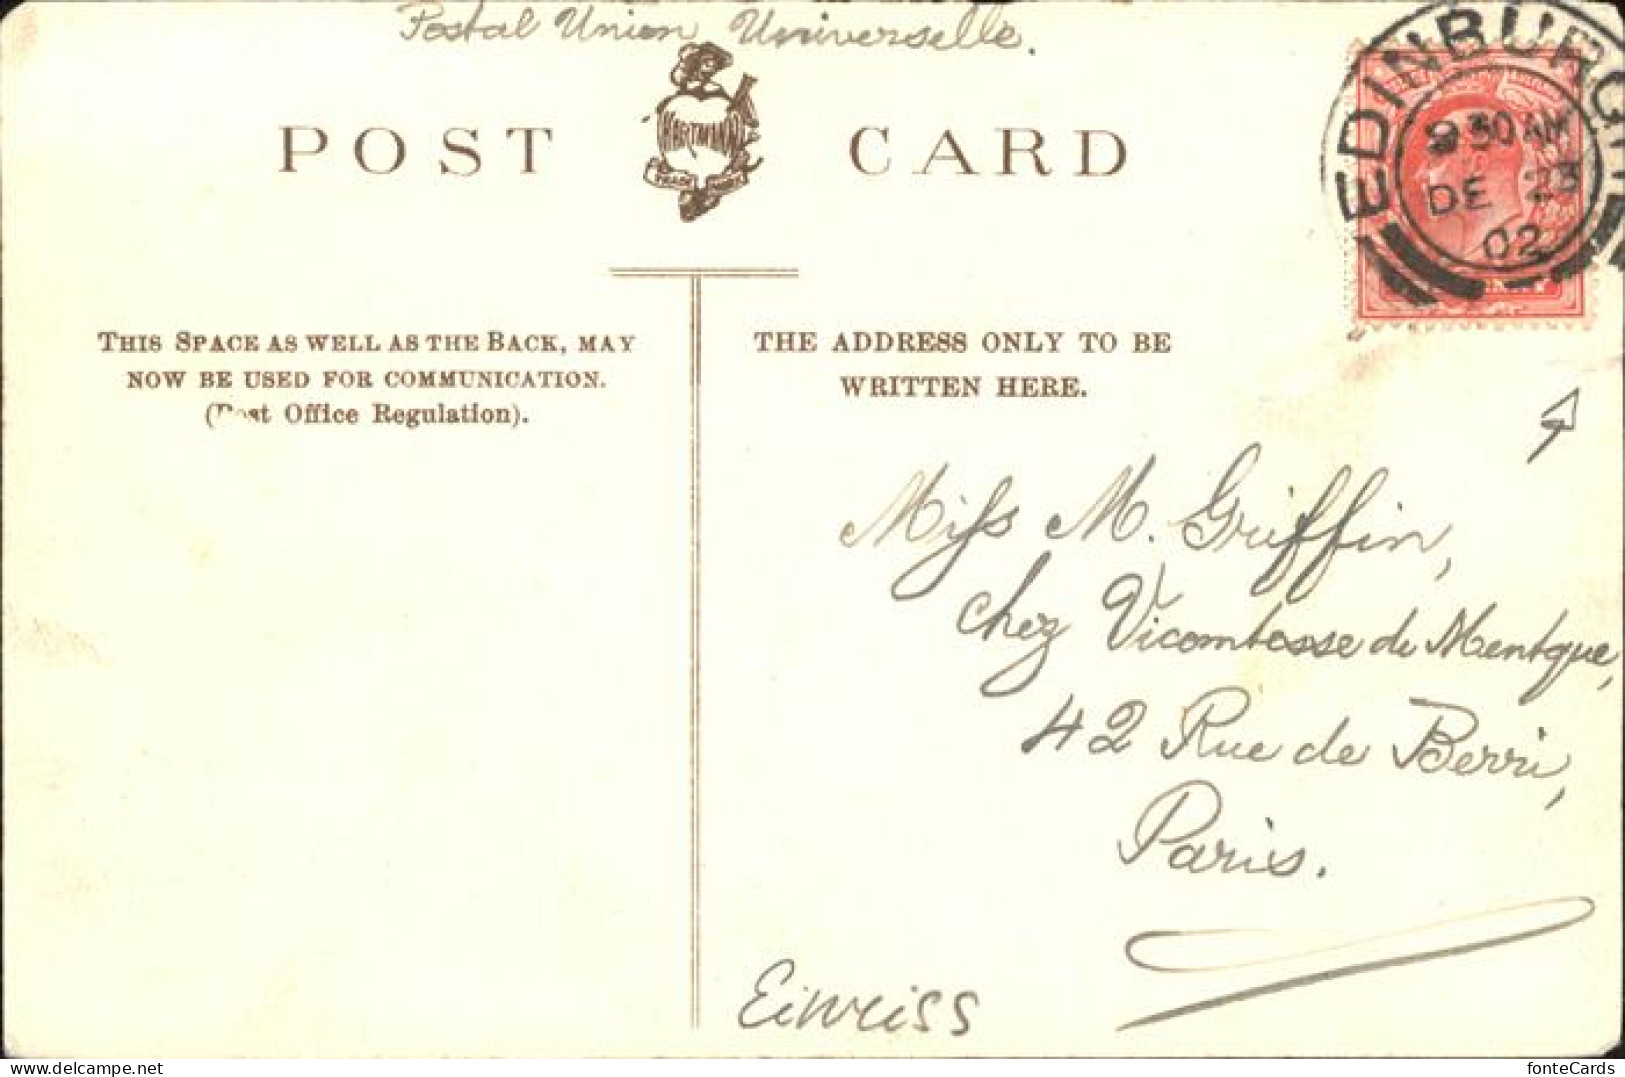 Postal Union Universelle.
POST CARD
HARTMANN
TRADE MARK
EDINBURGH
9 30 AM
DE 23
02
THIS SPACE AS WELL AS THE BACK, MAY
NOW BE USED FOR COMMUNICATION.
(Post Office Regulation).
THE ADDRESS ONLY TO BE
WRITTEN HERE.
Miss M. Griffin,
chez Vicomtesse de Mentque,
42 Rue de Berri,
Paris.
Einriss
fonteCards